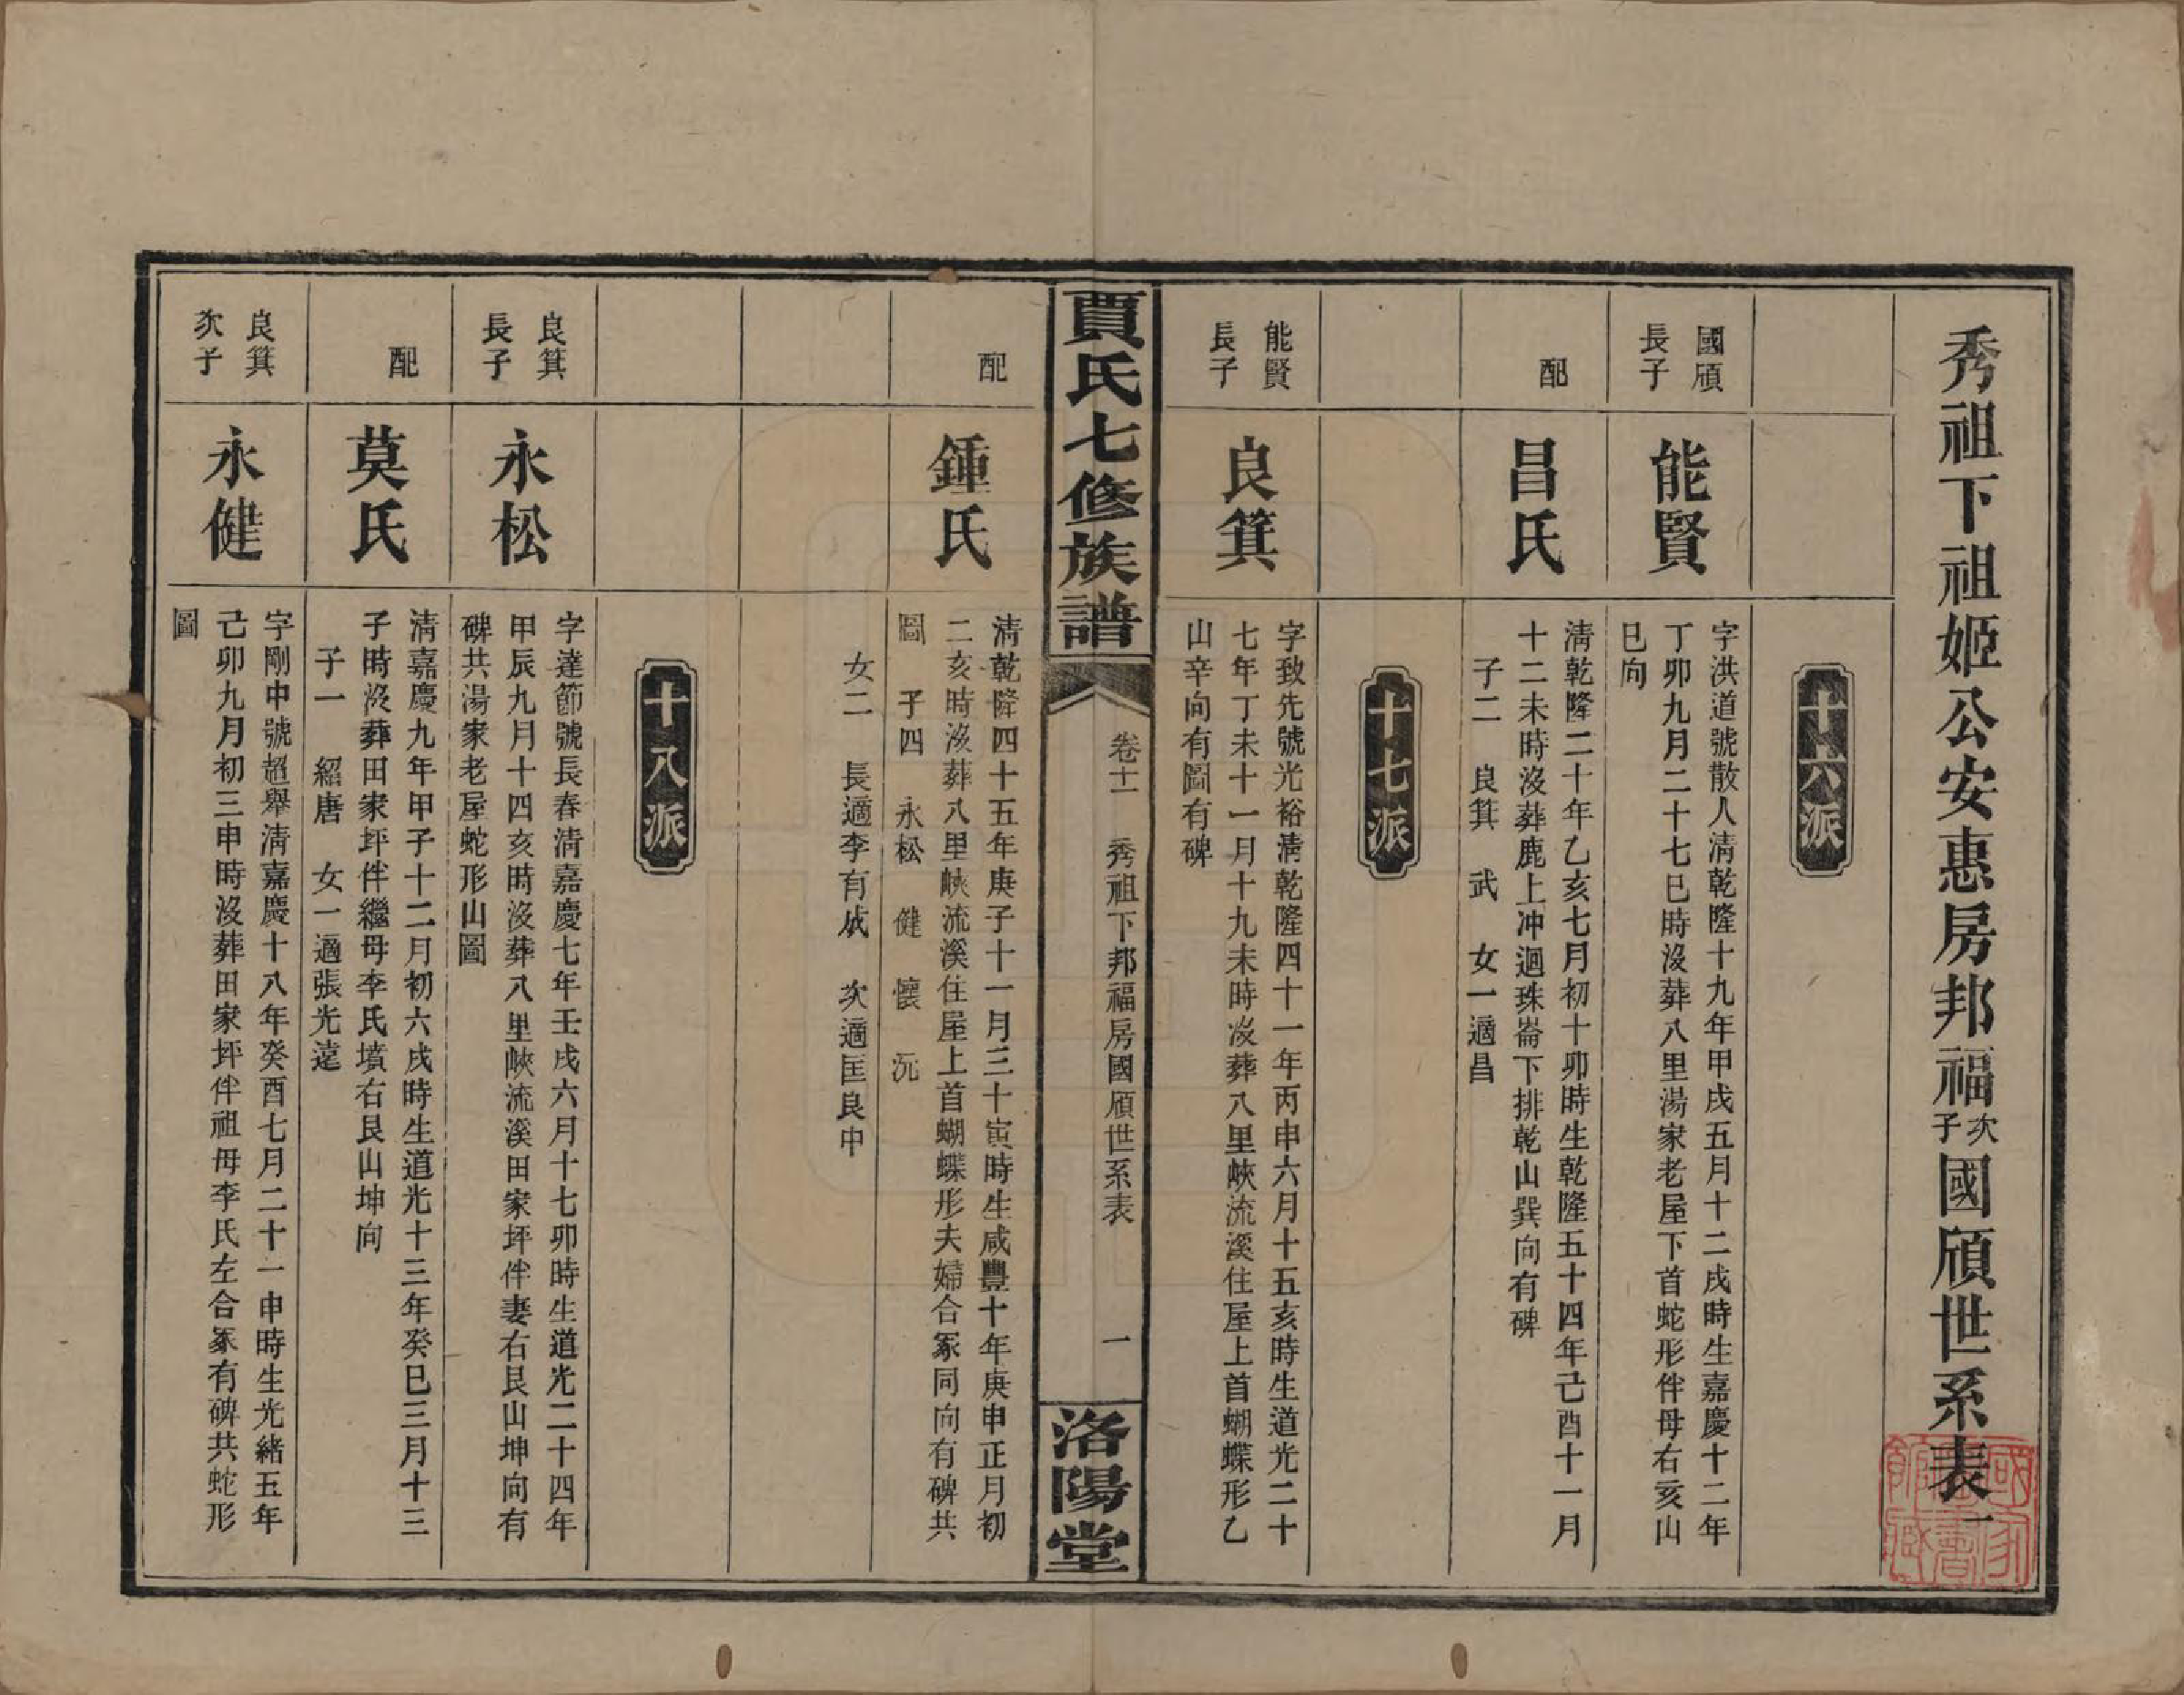 秀祖下祖姬公安惠房邦福次子國頎世系表一
十六派
國頎長子
能賢
字洪道號散人清乾隆十九年甲戌五月十二戌時生嘉慶十二年
丁卯九月二十七巳時沒葬八里湯家老屋下首蛇形伴母右亥山
巳向
配
昌氏
清乾隆二十年乙亥七月初十卯時生乾隆五十四年己酉十一月
十二未時沒葬鹿上冲迴珠崙下排乾山巽向有碑
子二 良箕 武 女一適昌
十七派
能賢長子
良箕
字致先號光裕清乾隆四十一年丙申六月十五亥時生道光二十
七年丁未十一月十九未時沒葬八里峽流溪住屋上首蝴蝶形乙
山辛向有圖有碑
賈氏七修族譜
卷十二 秀祖下邦福房國頎世系表 一
洛陽堂
配
鍾氏
清乾隆四十五年庚子十一月三十寅時生咸豐十年庚申正月初
二亥時沒葬八里峽流溪住屋上首蝴蝶形夫婦合冢同向有碑共
圖 子四 永松 健 懷 沅
女二 長適李有成 次適匡良中
十八派
良箕長子
永松
字達節號長春清嘉慶七年壬戌六月十七卯時生道光二十四年
甲辰九月十四亥時沒葬八里峽流溪田家坪伴妻右艮山坤向有
碑共湯家老屋蛇形山圖
配
莫氏
清嘉慶九年甲子十二月初六戌時生道光十三年癸巳三月十三
子時沒葬田家坪伴繼母李氏墳右艮山坤向
子一 紹唐 女一適張光遠
良箕次子
永健
字剛中號超舉清嘉慶十八年癸酉七月二十一申時生光緒五年
己卯九月初三申時沒葬田家坪伴祖母李氏左合冢有碑共蛇形
圖